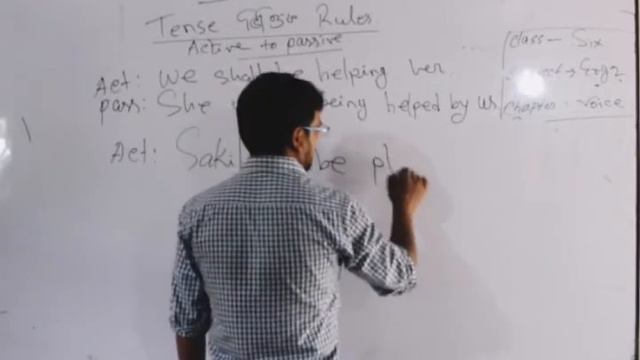 Tense ভিত্তিক Rules
Active to passive
Act: We shall be helping her
pass: She being helped by us
Act: Saki be pl
class - Six
Eng 2
Chapter: voice